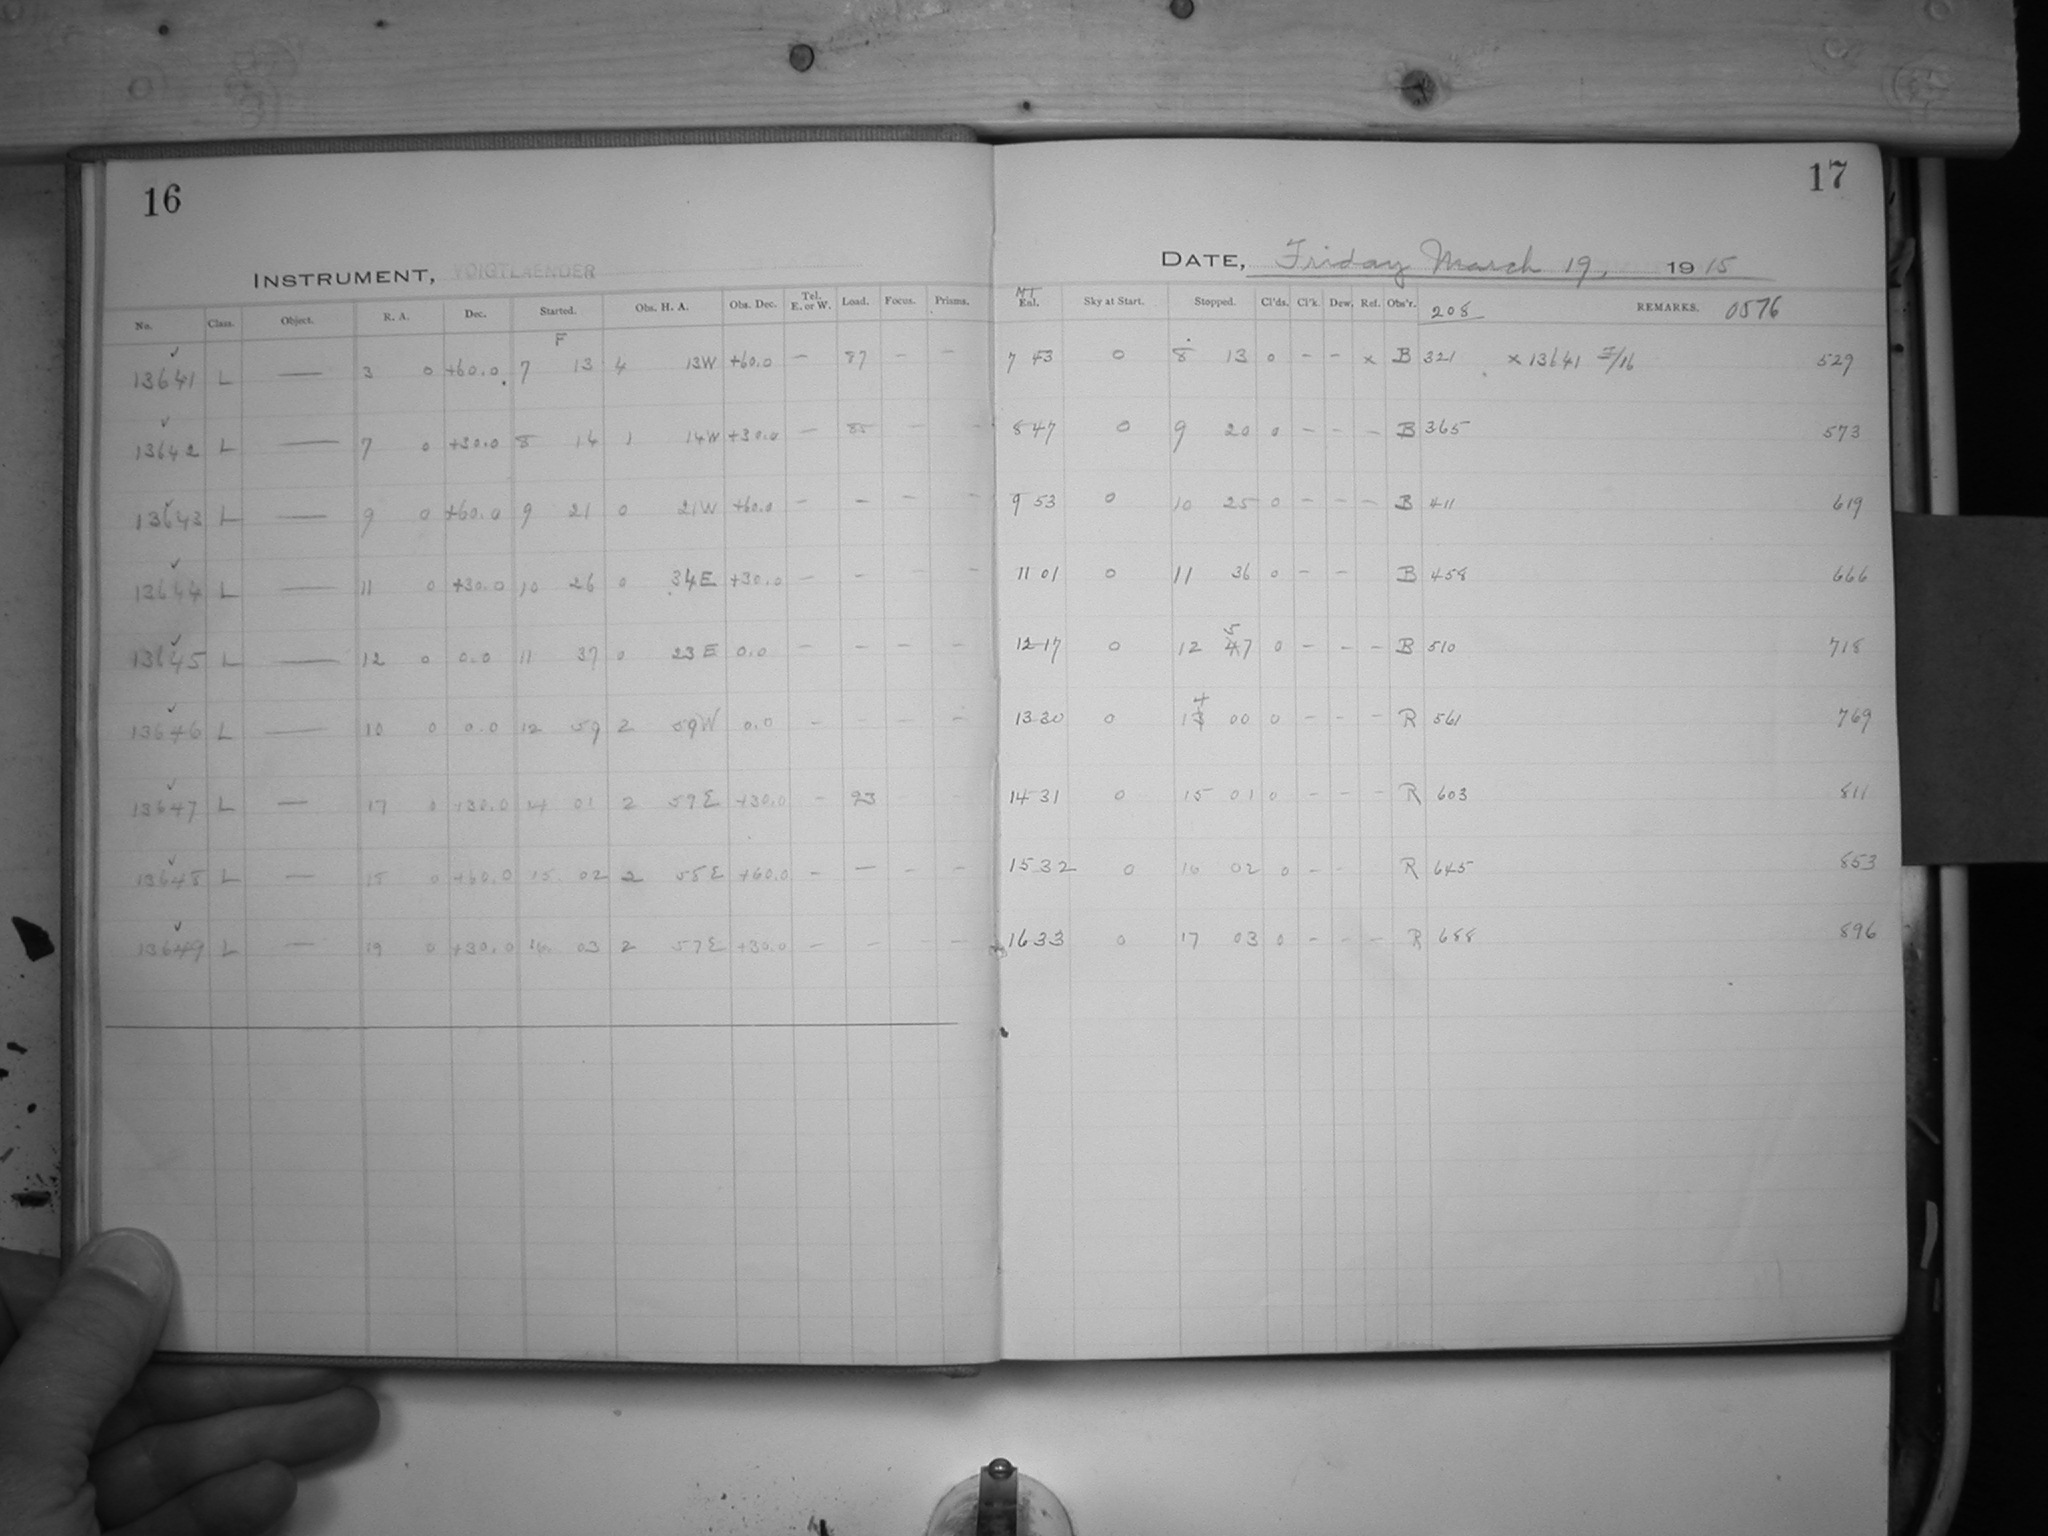 16
INSTRUMENT, VOIGTLAENDER
No. Class. Object. R. A. Dec. Started. Obs. H. A. Obs. Dec. Tel. E. or W. Load. Focus. Prisms.
F
13641 L — 3 0 +60.0 7 13 4 13W +60.0 — 87 — —
13642 L — 7 0 +30.0 8 14 1 14W +30.0 — 85 — —
13643 L — 9 0 +60.0 9 21 0 21W +60.0 — — — —
13644 L — 11 0 +30.0 10 26 0 34E +30.0 — — — —
13645 L — 12 0 0.0 11 37 0 23E 0.0 — — — —
13646 L — 10 0 0.0 12 59 2 59W 0.0 — — — —
13647 L — 17 0 +30.0 14 01 2 57E +30.0 — 93 — —
13648 L — 15 0 +60.0 15 02 2 55E +60.0 — — — —
13649 L — 19 0 +30.0 16 03 2 57E +30.0 — — — —
17
DATE, Friday March 19, 1915
MT
Enl. Sky at Start. Stopped. Cl'ds. Cl'k. Dew. Ref. Obs'r. 208 REMARKS. 0576
7 43 0 8 13 0 — — x B 321 x 13641 I/16 529
8 47 0 9 20 0 — — — B 365 573
9 53 0 10 25 0 — — — B 411 619
11 01 0 11 36 0 — — B 458 666
12 17 0 12 57 0 — — — B 510 718
13 30 0 14 00 0 — — — R 561 769
14 31 0 15 01 0 — — — R 603 811
15 32 0 16 02 0 — — R 645 853
16 33 0 17 03 0 — — — R 688 896